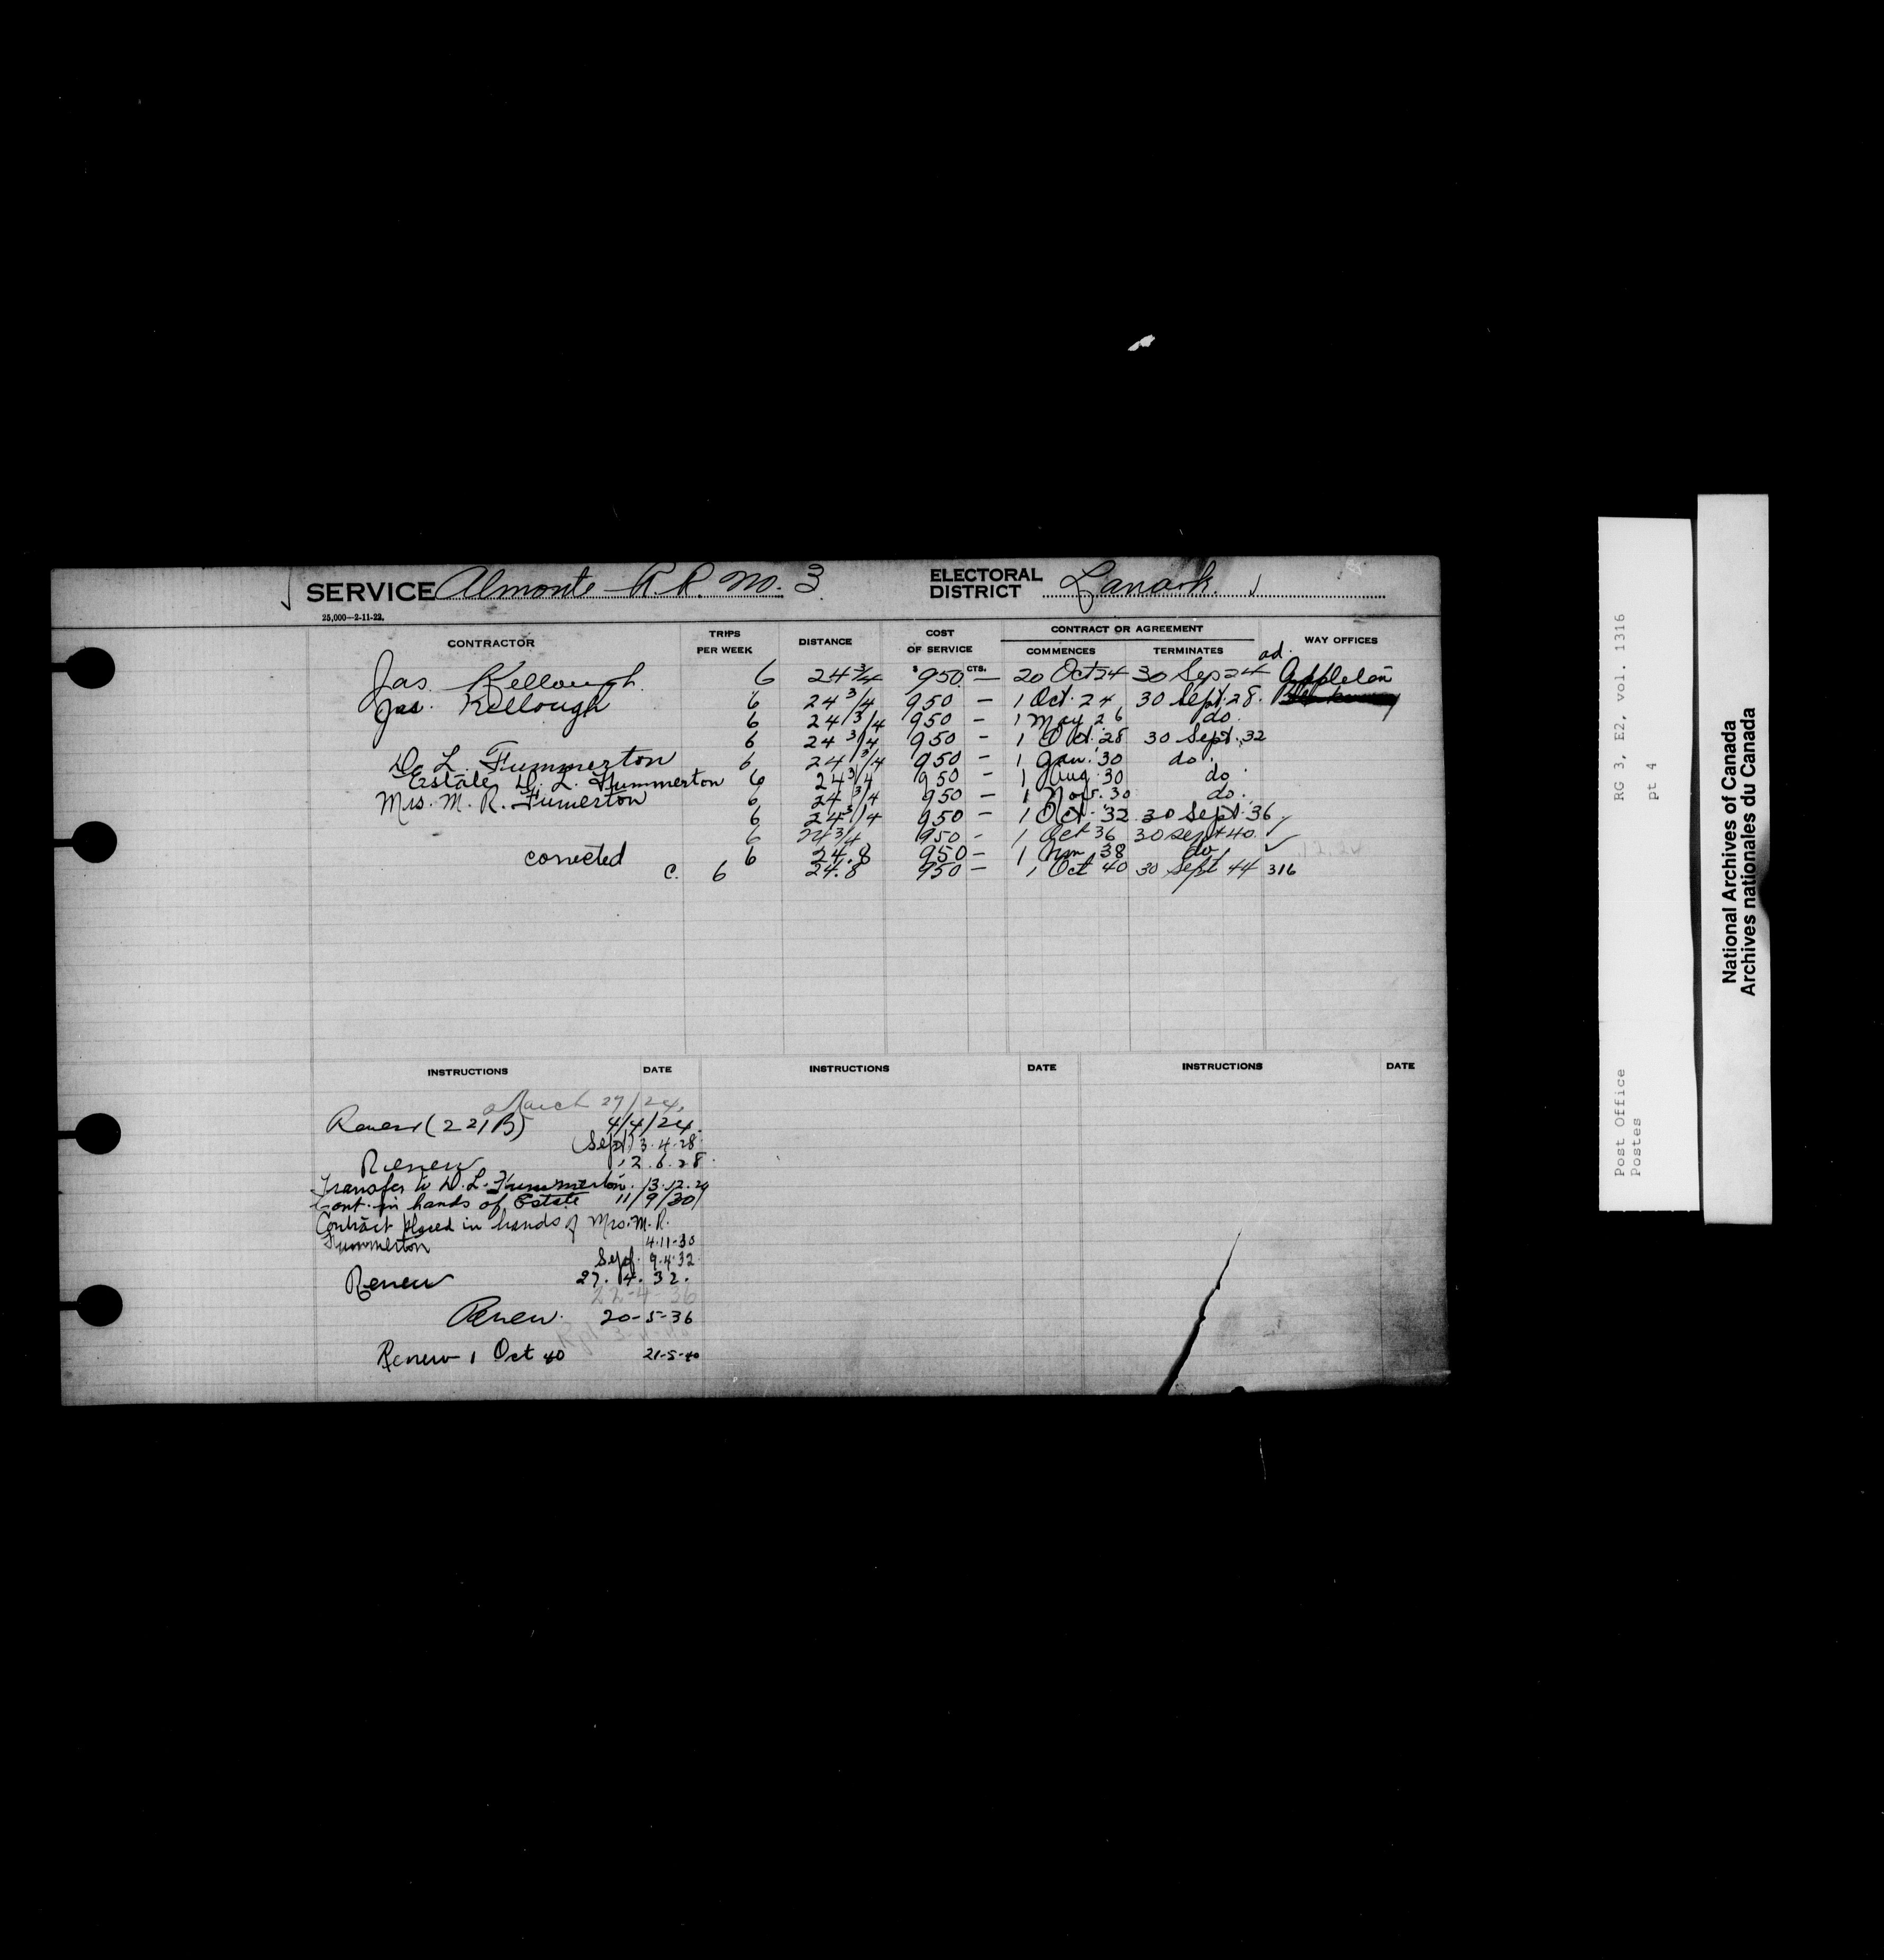 SERVICE Almonte R.R. No. 3 ELECTORAL DISTRICT Lanark.
25,000—2-11-22.
CONTRACTOR TRIPS PER WEEK DISTANCE COST OF SERVICE CONTRACT OR AGREEMENT COMMENCES TERMINATES WAY OFFICES
ad.
Jas. Kellough 6 24 3/4 $ 950 CTS. — 20 Oct 24 30 Sep 24 Appleton
Jas. Kellough 6 24 3/4 950 — 1 Oct. 24 30 Sept. 28.
6 24 3/4 950 — 1 May 26 do.
6 24 3/4 950 — 1 Oct. 28 30 Sept. 32
D. L. Fummerton 6 24 3/4 950 — 1 Jan. 30 do.
Estate D. L. Fummerton 6 24 3/4 950 — 1 Aug. 30 do.
Mrs. M. R. Fumerton 6 24 3/4 950 — 1 Nov. 30 do.
6 24 3/4 950 — 1 Oct. 32 30 Sept. 36
6 24 3/4 950 — 1 Oct 36 30 Sept 40
corrected 6 24.8 950 — 1 38 do
c. 6 24.8 950 — 1 Oct 40 30 Sept 44 316
INSTRUCTIONS DATE INSTRUCTIONS DATE INSTRUCTIONS DATE
March 27/24,
Renew (221B) 4/4/24.
(Sept) 3.4.28
Renew 12.6.28.
Transfer to D. L. Fummerton. 13.12.29
Cont. in hands of Estate 11/9/30
Contract placed in hands of Mrs. M. R.
Fummerton 4-11-30
Sept. 9.4.32
Renew 27.4.32.
22-4-36
Renew. 20-5-36
Renew 1 Oct 40 21-5-40
Post Office RG 3, E2, vol. 1316
Postes pt 4
National Archives of Canada
Archives nationales du Canada